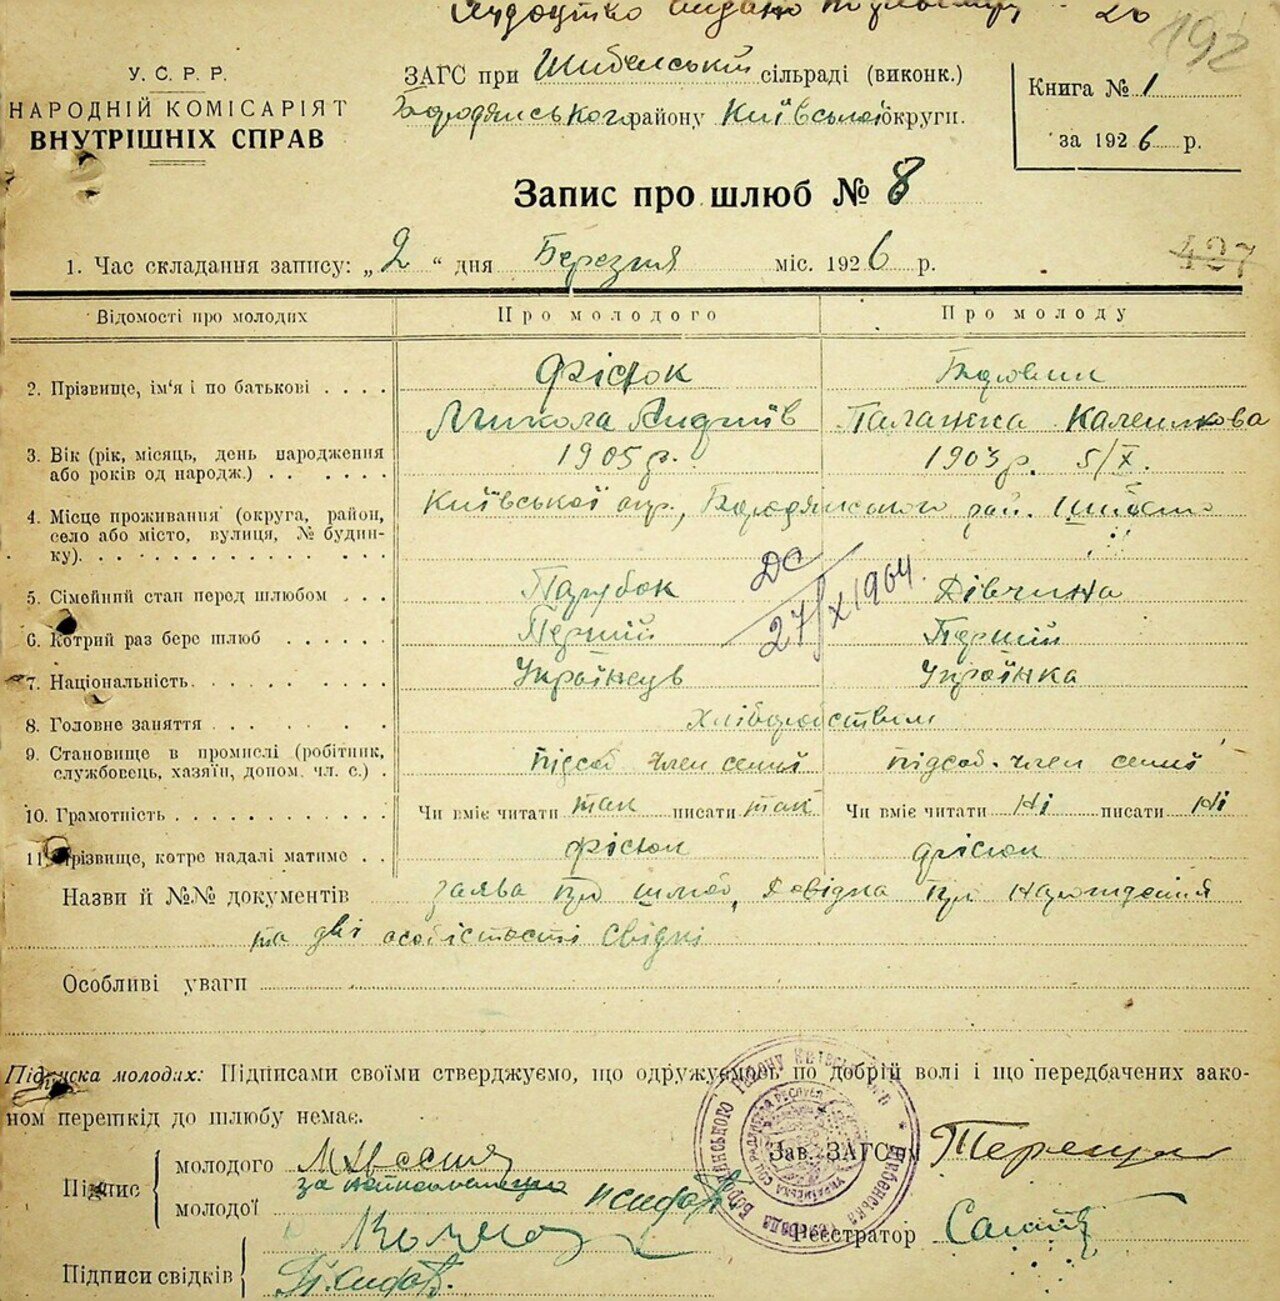 видано
192
У. С. Р. Р.
НАРОДНІЙ КОМІСАРІЯТ
ВНУТРІШНІХ СПРАВ
ЗАГС при Шибенській сільраді (виконк.)
Бородянського району Київської округи.
Книга № 1
за 1926 р.
Запис про шлюб № 8
1. Час складання запису: „2“ дня Березня міс. 1926 р.
427
Відомості про молодих
Про молодого
Про молоду
2. Прізвище, ім'я і по батькові
Фісюк
Микола Андріїв
Палажка
3. Вік (рік, місяць, день народження
або років од народж.)
1905 р.
1903 р. 5/X.
4. Місце проживання (округа, район,
село або місто, вулиця, № будин-
ку).
Київської окр., Бородянського рай.
ДС
27/X 1964.
5. Сімейний стан перед шлюбом
Парубок
Дівчина
6. Котрий раз бере шлюб
Перший
Перший
7. Національність
Українець
Українка
8. Головне заняття
Хліборобством
9. Становище в промислі (робітник,
службовець, хазяїн, допом. чл. с.)
підсоб член семьї
підсоб. член семьї
10. Грамотність
Чи вміє читати так писати так
Чи вміє читати Ні писати Ні
11. Прізвище, котре надалі матиме
Фісюк
Фісюк
Назви й №№ документів заява про шлюб, Довідка про
та дві особістості свідкі
Особливі уваги
Підписка молодих: Підписами своїми стверджуємо, що одружуємось по добрій волі і що передбачених зако-
ном перешкід до шлюбу немає.
Підпис
молодого
молодої
за
Зав. ЗАГС'ом
Реєстратор
Підписи свідків